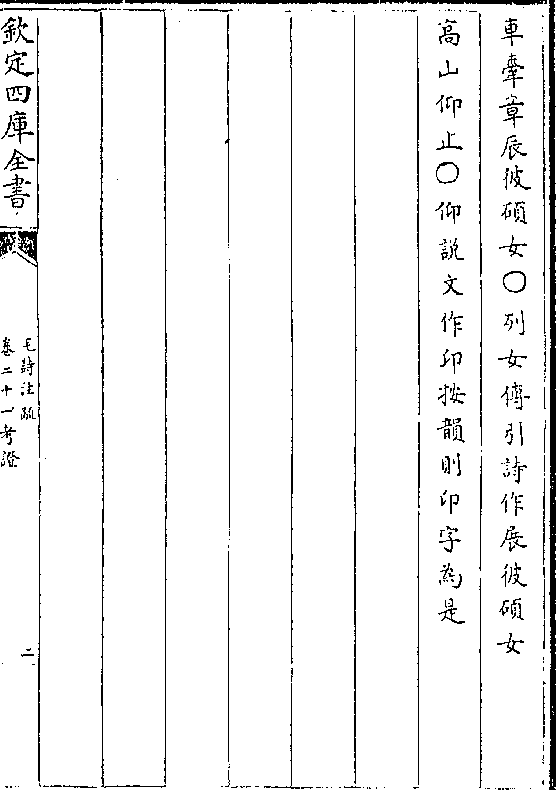 車舝章辰彼碩女〇列女傳引詩作展彼碩女
高山仰止〇仰説文作卬按韻則卬字為是
欽定四庫全書
毛詩注疏
卷二十一考證
二